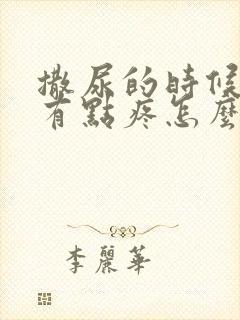 撒尿的時候
有點疼怎麼
李麗華